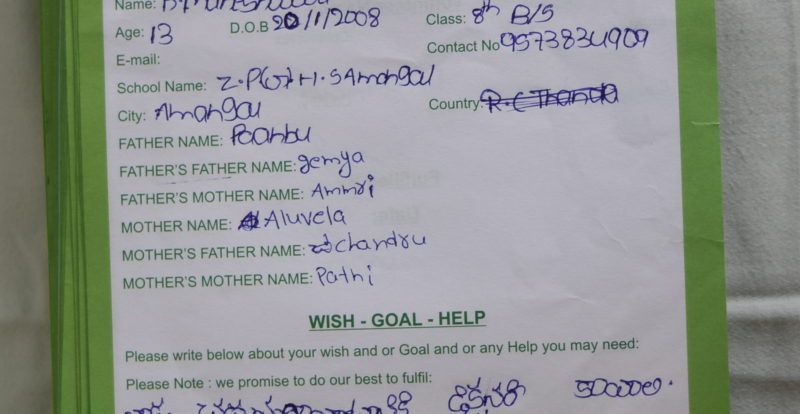 Name:
Age: 13 D.O.B 20/1/2008 Class: 8th B/S
Contact No 9573834909
E-mail:
School Name: Z.P(G)H.S Amangal
City: Amangal Country: R.C Thanda
FATHER NAME: Paanbu
FATHER'S FATHER NAME: Jemya
FATHER'S MOTHER NAME: Ammri
MOTHER NAME: Aluvela
MOTHER'S FATHER NAME: chandru
MOTHER'S MOTHER NAME: Pathi
WISH - GOAL - HELP
Please write below about your wish and or Goal and or any Help you may need:
Please Note : we promise to do our best to fulfil: